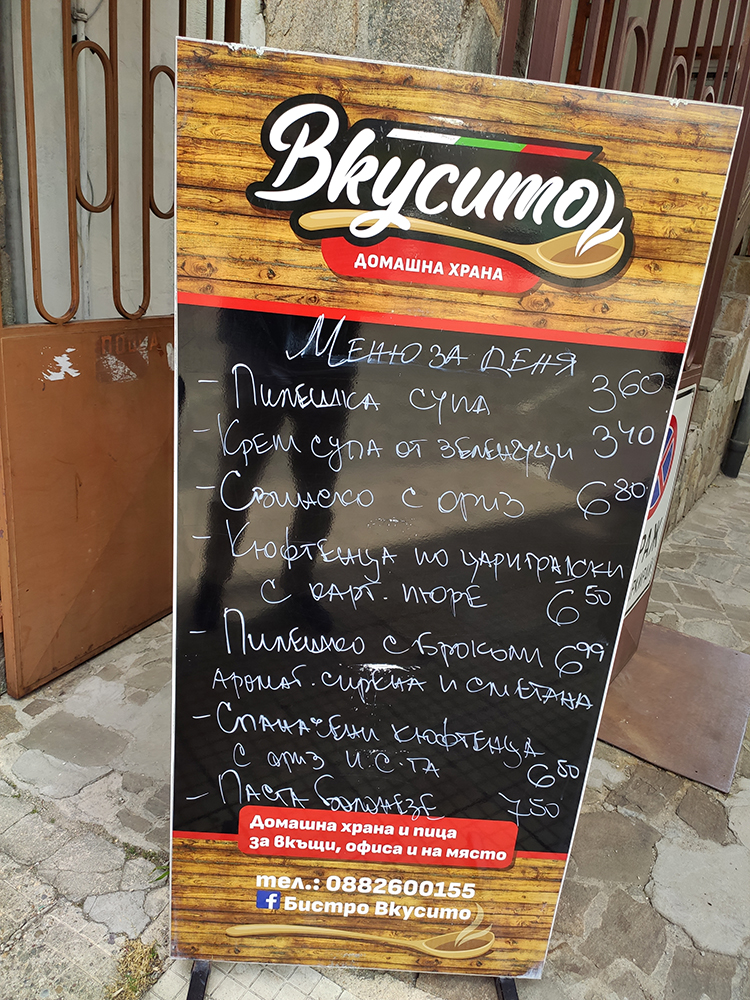 Вкусито
ДОМАШНА ХРАНА
МЕНЮ ЗА ДЕНЯ
- ПИЛЕШКА СУПА 3 60
- КРЕМ СУПА ОТ ЗЕЛЕНЧУЦИ 3 40
- СВИНСКО С ОРИЗ 6 80
- КЮФТЕНЦА ПО ЦАРИГРАДСКИ
С КАРТ. ПЮРЕ 6 50
- ПИЛЕШКО С БРОКОЛИ 6 99
АРОМАТ. СИРЕНА И СМЕТАНА
- СПАНАЧЕНИ КЮФТЕНЦА
С ОРИЗ И С-ТА 6 80
- ПАСТА БОЛОНЕЗЕ 7 50
Домашна храна и пица
за вкъщи, офиса и на място
тел.: 0882600155
f Бистро Вкусито